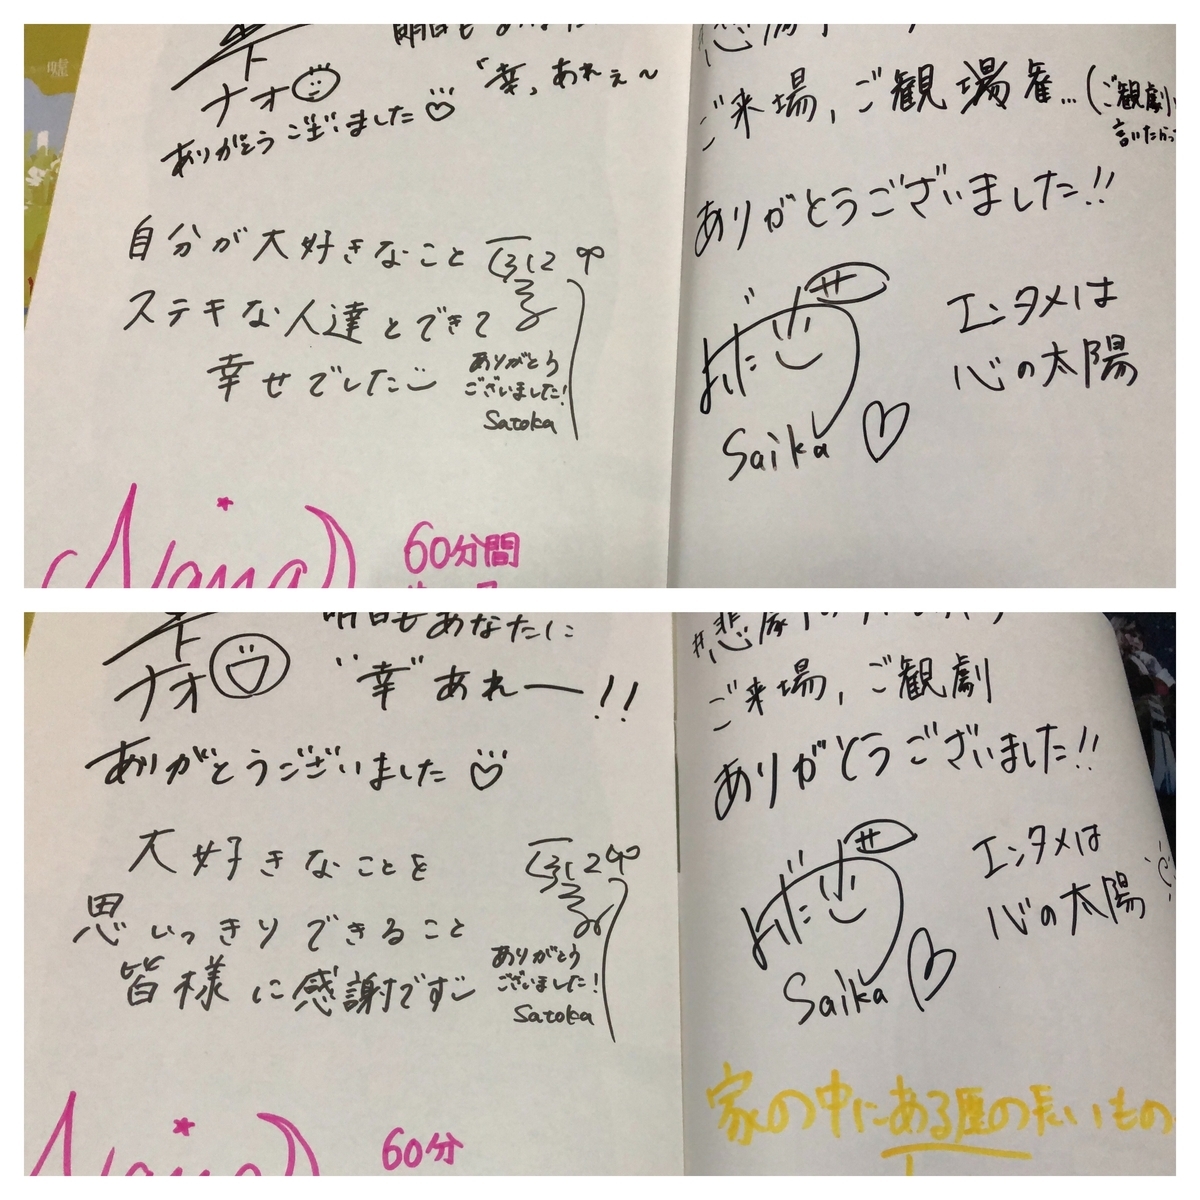 幸
ナオ
明日もあなたに
"幸"あれぇ〜
ありがとうございました
自分が大好きなこと
ステキな人達とできて
幸せでした
ありがとう
ございました!
Satoka
60分間
ご来場,ご観場雀…(ご観劇
言いたかっ
ありがとうございました!!
よだ
Saika
エンタメは
心の太陽
ナオ
明日もあなたに
"幸"あれー!!
ありがとうございました
大好きなことを
思いっきりできること
皆様に感謝です
ありがとう
ございました!
Satoka
60分
ご来場,ご観劇
ありがとうございました!!
よだ
Saika
エンタメは
心の太陽
家の中にある歴の長いもの